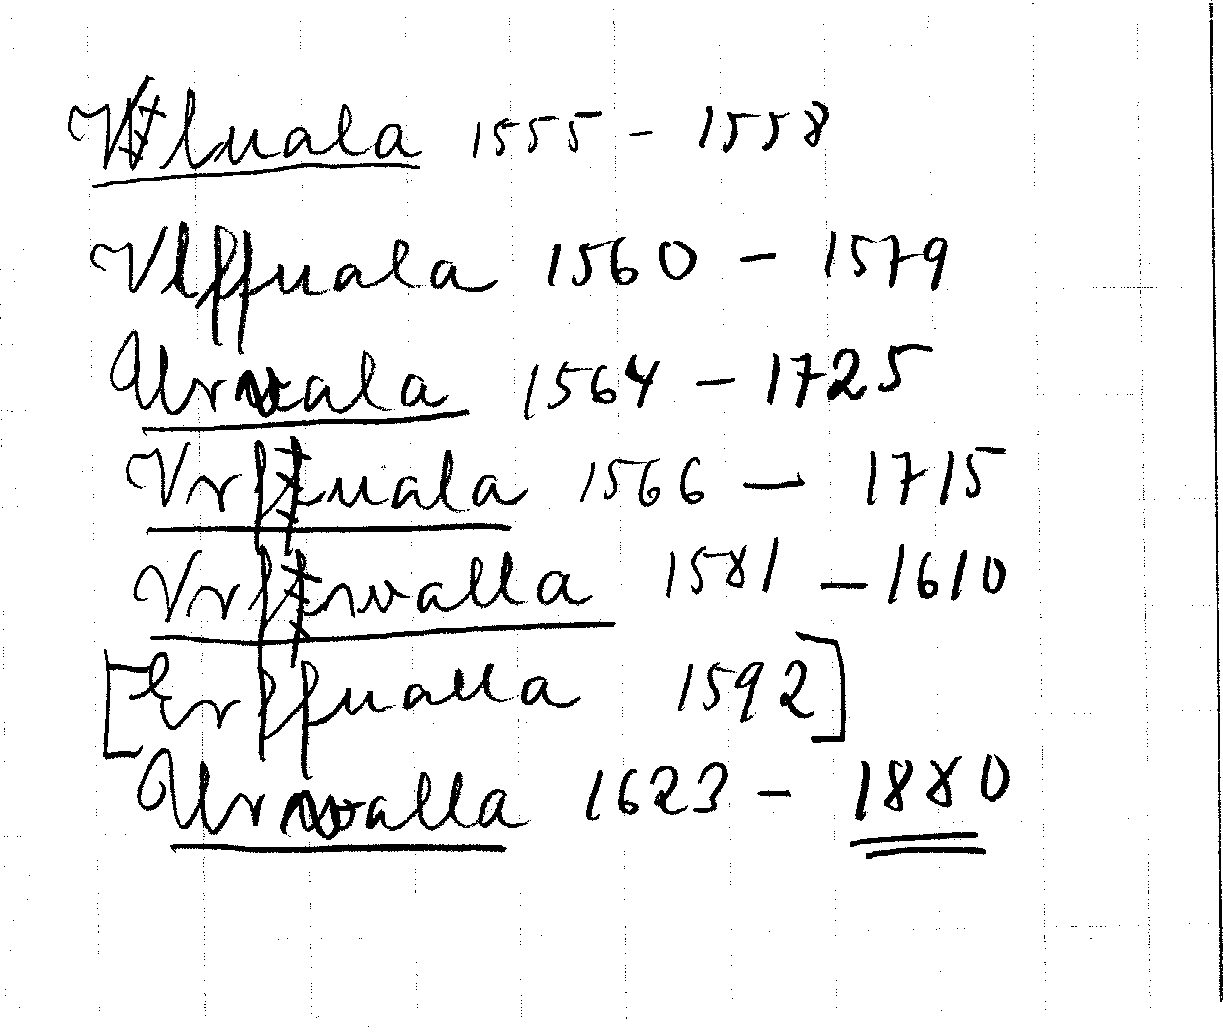 1555 - 1558
Vlffuala 1560 - 1579
Urvala 1564 - 1725
Vrffuala 1566 - 1715
1581 - 1610
[Erffualla 1592]
Urvalla 1623 - 1880